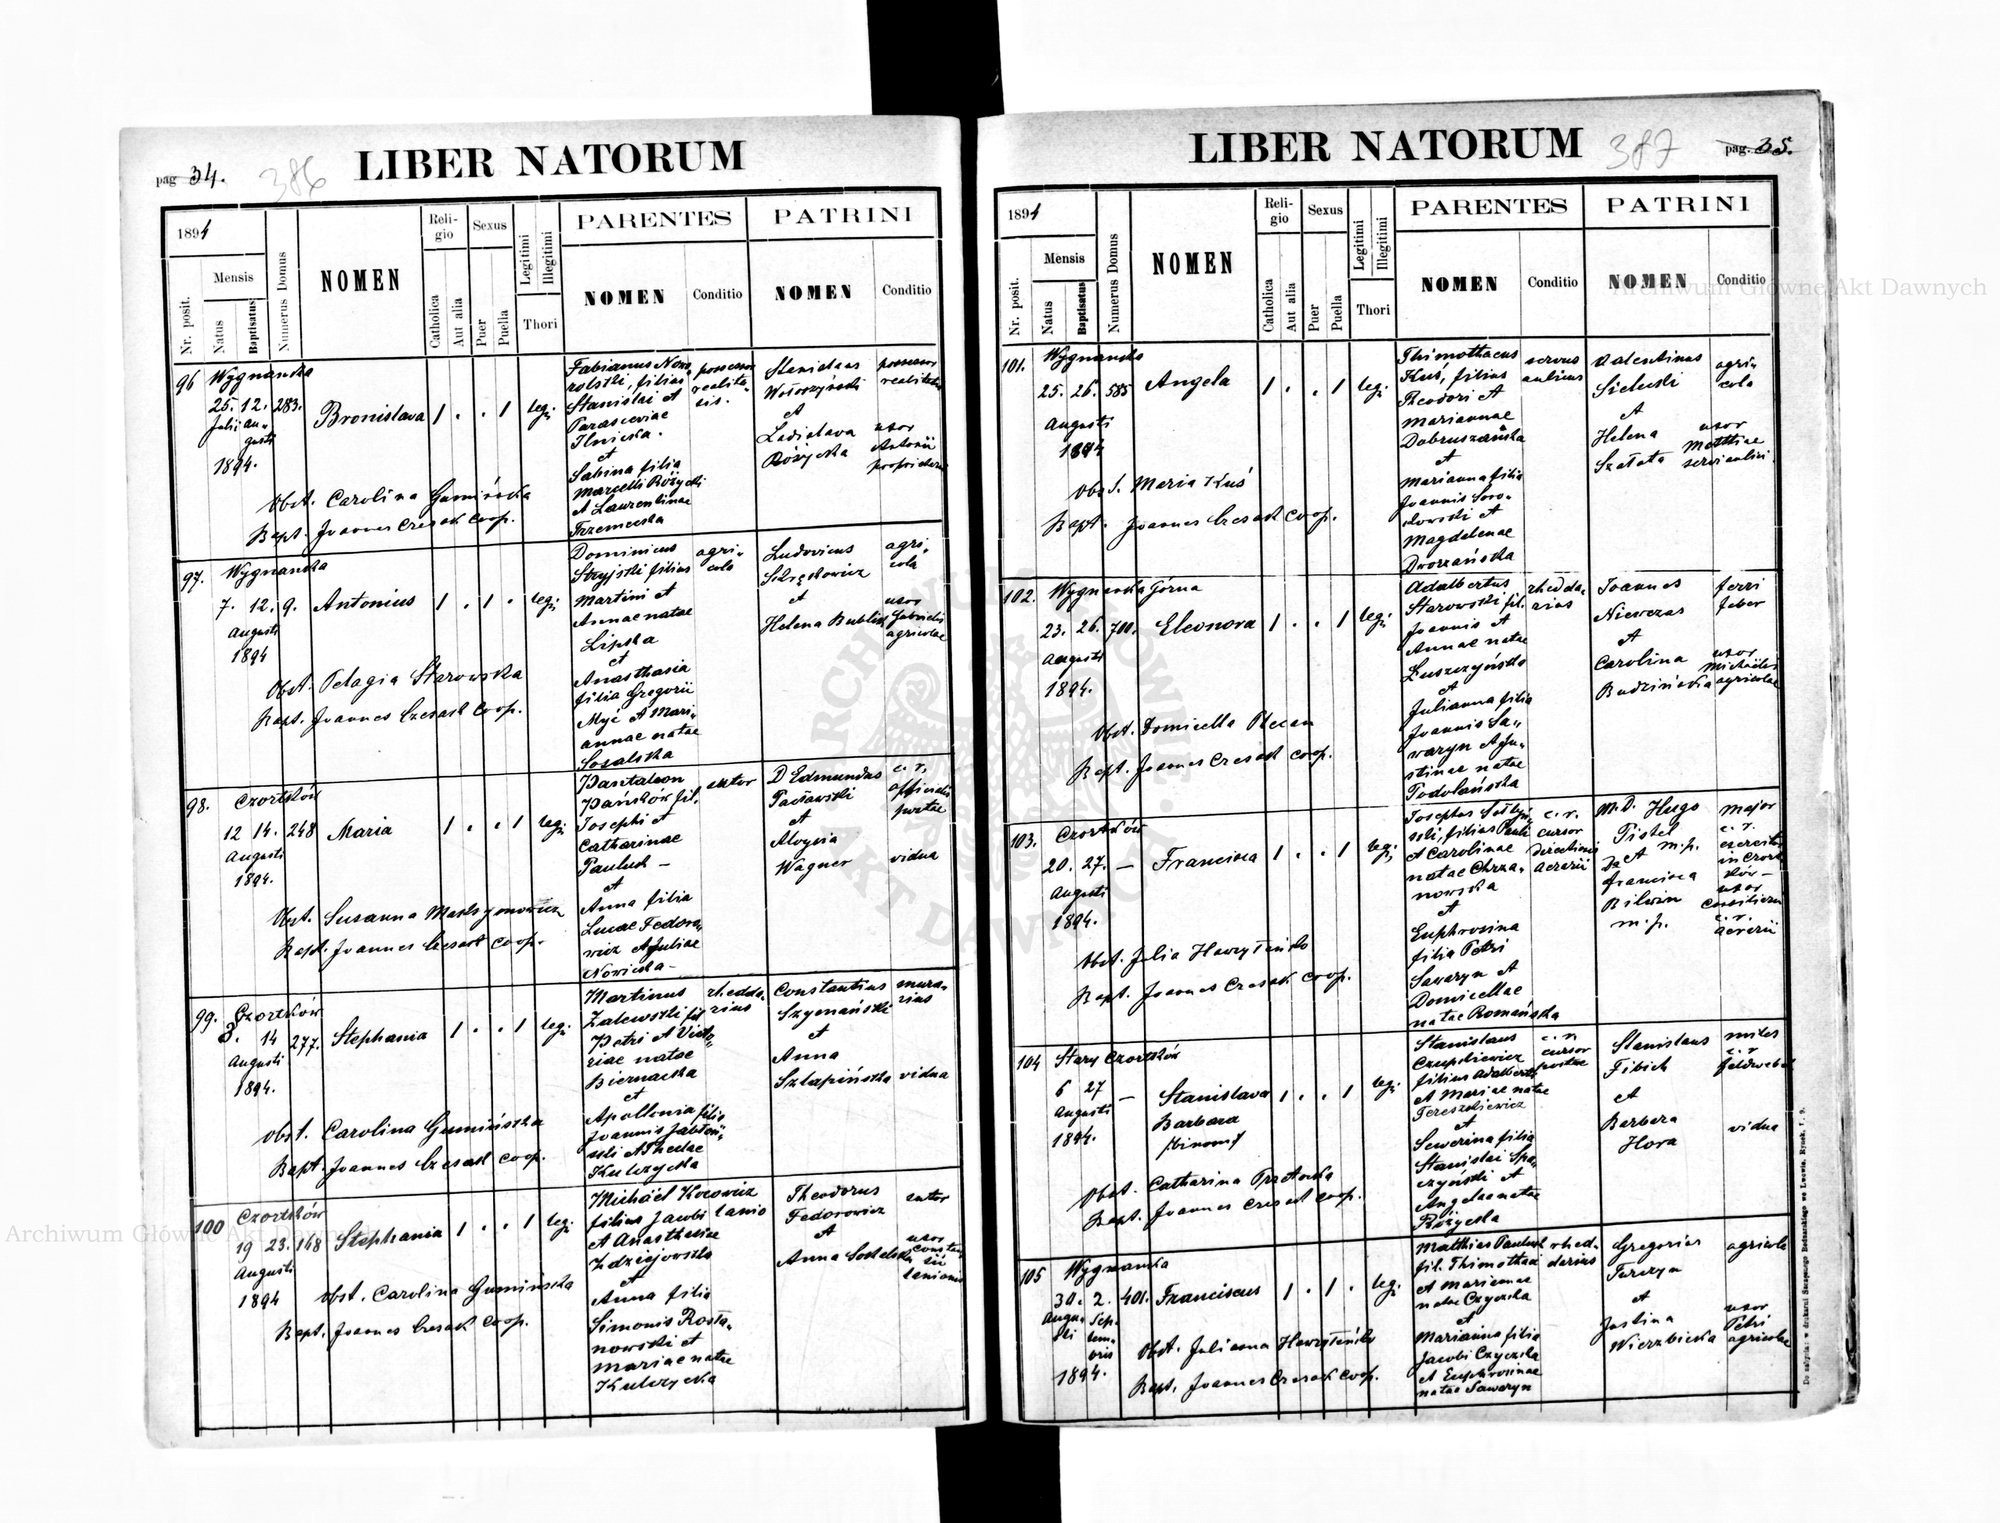 pag 34.
386
LIBER NATORUM
1894
Nr. posit.
Mensis
Natus
Baptisatus
Numerus Domus
NOMEN
Reli-
gio
Catholica
Aut alia
Sexus
Puer
Puella
Legitimi
Illegitimi
Thori
PARENTES
NOMEN
Conditio
PATRINI
NOMEN
Conditio
96
Wygnanka
25. 12. 283.
Julii Au-
gusti
1894.
Bronislava 1 . . 1 leg:
Obst. Carolina Gumińska
Bapt. Joannes Czesak coop.
Fabianus Nowo-
rolski, filius
Stanislai et
Parasceviae
Ilnicka.
et
Sabina filia
Marcelli Różycki
et Laurentinae
Trzemecka
possessor
realita-
tis.
Stanislaus
Wołoszyński
et
Ladislava
Różycka
possessor
realitatis
uxor
Antonii
97.
Wygnanka
7. 12. 9. Antonius 1 . 1 . leg:
Augusti
1894
Obst. Pelagia Starowska
Bapt. Joannes Czesak coop.
Dominicus
Stryjski filius
Martini et
Annae natae
Lipska
et
Anasthasia
filia Gregorii
Myć et Mari-
annae natae
Sosalska
agri-
cola
Ludovicus
et
Helena Bublik
agri-
cola
uxor
Gabrielis
agricolae
98.
Czortków
12 14. 248 Maria 1 . . 1 leg:
Augusti
1894.
Obst. Susanna Maksymowicz
Bapt. Joannes Czesak coop.
Pantaleon
Pańków fil.
Josephi et
Catharinae
Pauluch —
et
Anna filia
Lucae Fedoro-
wicz et Juliae
Nowicka —
sutor
D Edmundus
Pacławski
et
Aloysia
Wagner
c. r.
officialis
postae
vidua
99.
Czortków
8. 14 277. Stephania 1 . . 1 leg:
Augusti
1894.
Obst. Carolina Gumińska
Bapt. Joannes Czesak coop.
Martinus
Zalewski fil
Petri et Victo-
riae natae
Biernacka
et
Apollonia filia
Joannis Jabłoń-
ski et Theclae
Kulczycka
rhedda-
rius
Constantius
Szymański
et
Anna
Szlapińska
mura-
rius
vidua
100
Czortków
19 23. 148 Stephania 1 . . 1 leg:
Augusti
1894
Obst. Carolina Gumińska
Bapt. Joannes Czesak coop.
Michael Kocowicz
filius Jacobi
et Anasthasiae
et
Anna filia
Simonis Rosta-
nowski et
Mariae natae
Kulczycka
lanio
Theodorus
Fedorowicz
et
Anna
sutor
uxor
Constan-
tii
lanionis
LIBER NATORUM
387
pag. 35.
1894
Nr. posit.
Mensis
Natus
Baptisatus
Numerus Domus
NOMEN
Reli-
gio
Catholica
Aut alia
Sexus
Puer
Puella
Legitimi
Illegitimi
Thori
PARENTES
NOMEN
Conditio
PATRINI
NOMEN
Conditio
101.
Wygnanka
25. 26. 585 Angela 1 . . 1 leg:
Augusti
1894
Obst. Maria Kuś
Bapt. Joannes Czesak coop.
Thimothaeus
Kuś, filius
Theodori et
Mariannae
Dobruszańska
et
Marianna filia
Joannis Soro-
kowski et
Magdalenae
Dworzańska
servus
aulicus
Valentinus
Sielecki
et
Helena
Szałata
agri-
cola
uxor
Matthiae
servi aulici
102.
Wygnanka Górna
23. 26. 700. Eleonora 1 . . 1 leg:
Augusti
1894.
Obst. Domicella Plecan
Bapt. Joannes Czesak coop.
Adalbertus
Starowski fil.
Joannis et
Annae natae
Łuszczyńska
et
Julianna filia
Joannis Sa-
waryn et Ju-
stinae natae
Podolańska
rhedda-
rius
Joannes
Niewczas
et
Carolina
Budzińska
ferri
faber
uxor
Michaelis
agricolae
103.
Czortków
20. 27. — Francisca 1 . . 1 leg:
Augusti
1894.
Obst. Julia Hawryluńko
Bapt. Joannes Czesak coop.
Josephus
ski, filius Pauli
et Carolinae
natae Chrza-
nowska
et
Euphrosina
filia Petri
Sawaryn et
Domicellae
natae Romańska
c. r.
cursor
Directionis
aerarii
M. D. Hugo
Pistel
et m. p.
Francisca
Bilwin
m. p.
major
c. r.
exercitus
in Czort-
ków —
uxor
c. r.
aerarii
104
Stary Czortków
6 27 — Stanislava 1 . . 1 leg:
Augusti
1894.
Barbara
/binom/
Obst. Catharina
Bapt. Joannes Czesak coop.
Stanislaus
Czupkiewicz
filius Adalberti
et Mariae natae
Tereszkiewicz
et
Sewerina filia
Stanislai Spa-
czyński et
Angelae natae
Różycka
c. r.
cursor
postae
Stanislaus
Fibich
et
Barbara
Hora
miles
c. r.
feldwebel
vidua
105
Wygnanka
30. 2. 401. Franciscus 1 . 1 . leg:
Augu- Sep-
sti tem-
bris
1894.
Obst. Julianna Hawryluńko
Bapt. Joannes Czesak coop.
Matthias Pauluch
fil. Thimothaei
et Mariannae
natae Czyczka
et
Marianna filia
Jacobi Czyczka
et Euphrosinae
natae Sawaryn
rhed-
darius
Gregorius
Terczyn
et
Justina
Wierzbicka
agricola
uxor
Petri
agricolae
Do nabycia: w drukarni Szczęsnego Bednarskiego we Lwowie, Rynek, l. 9.
Archiwum Główne Akt Dawnych
Archiwum Główne Akt Dawnych
ARCHIWUM GŁÓWNE
AKT DAWNYCH